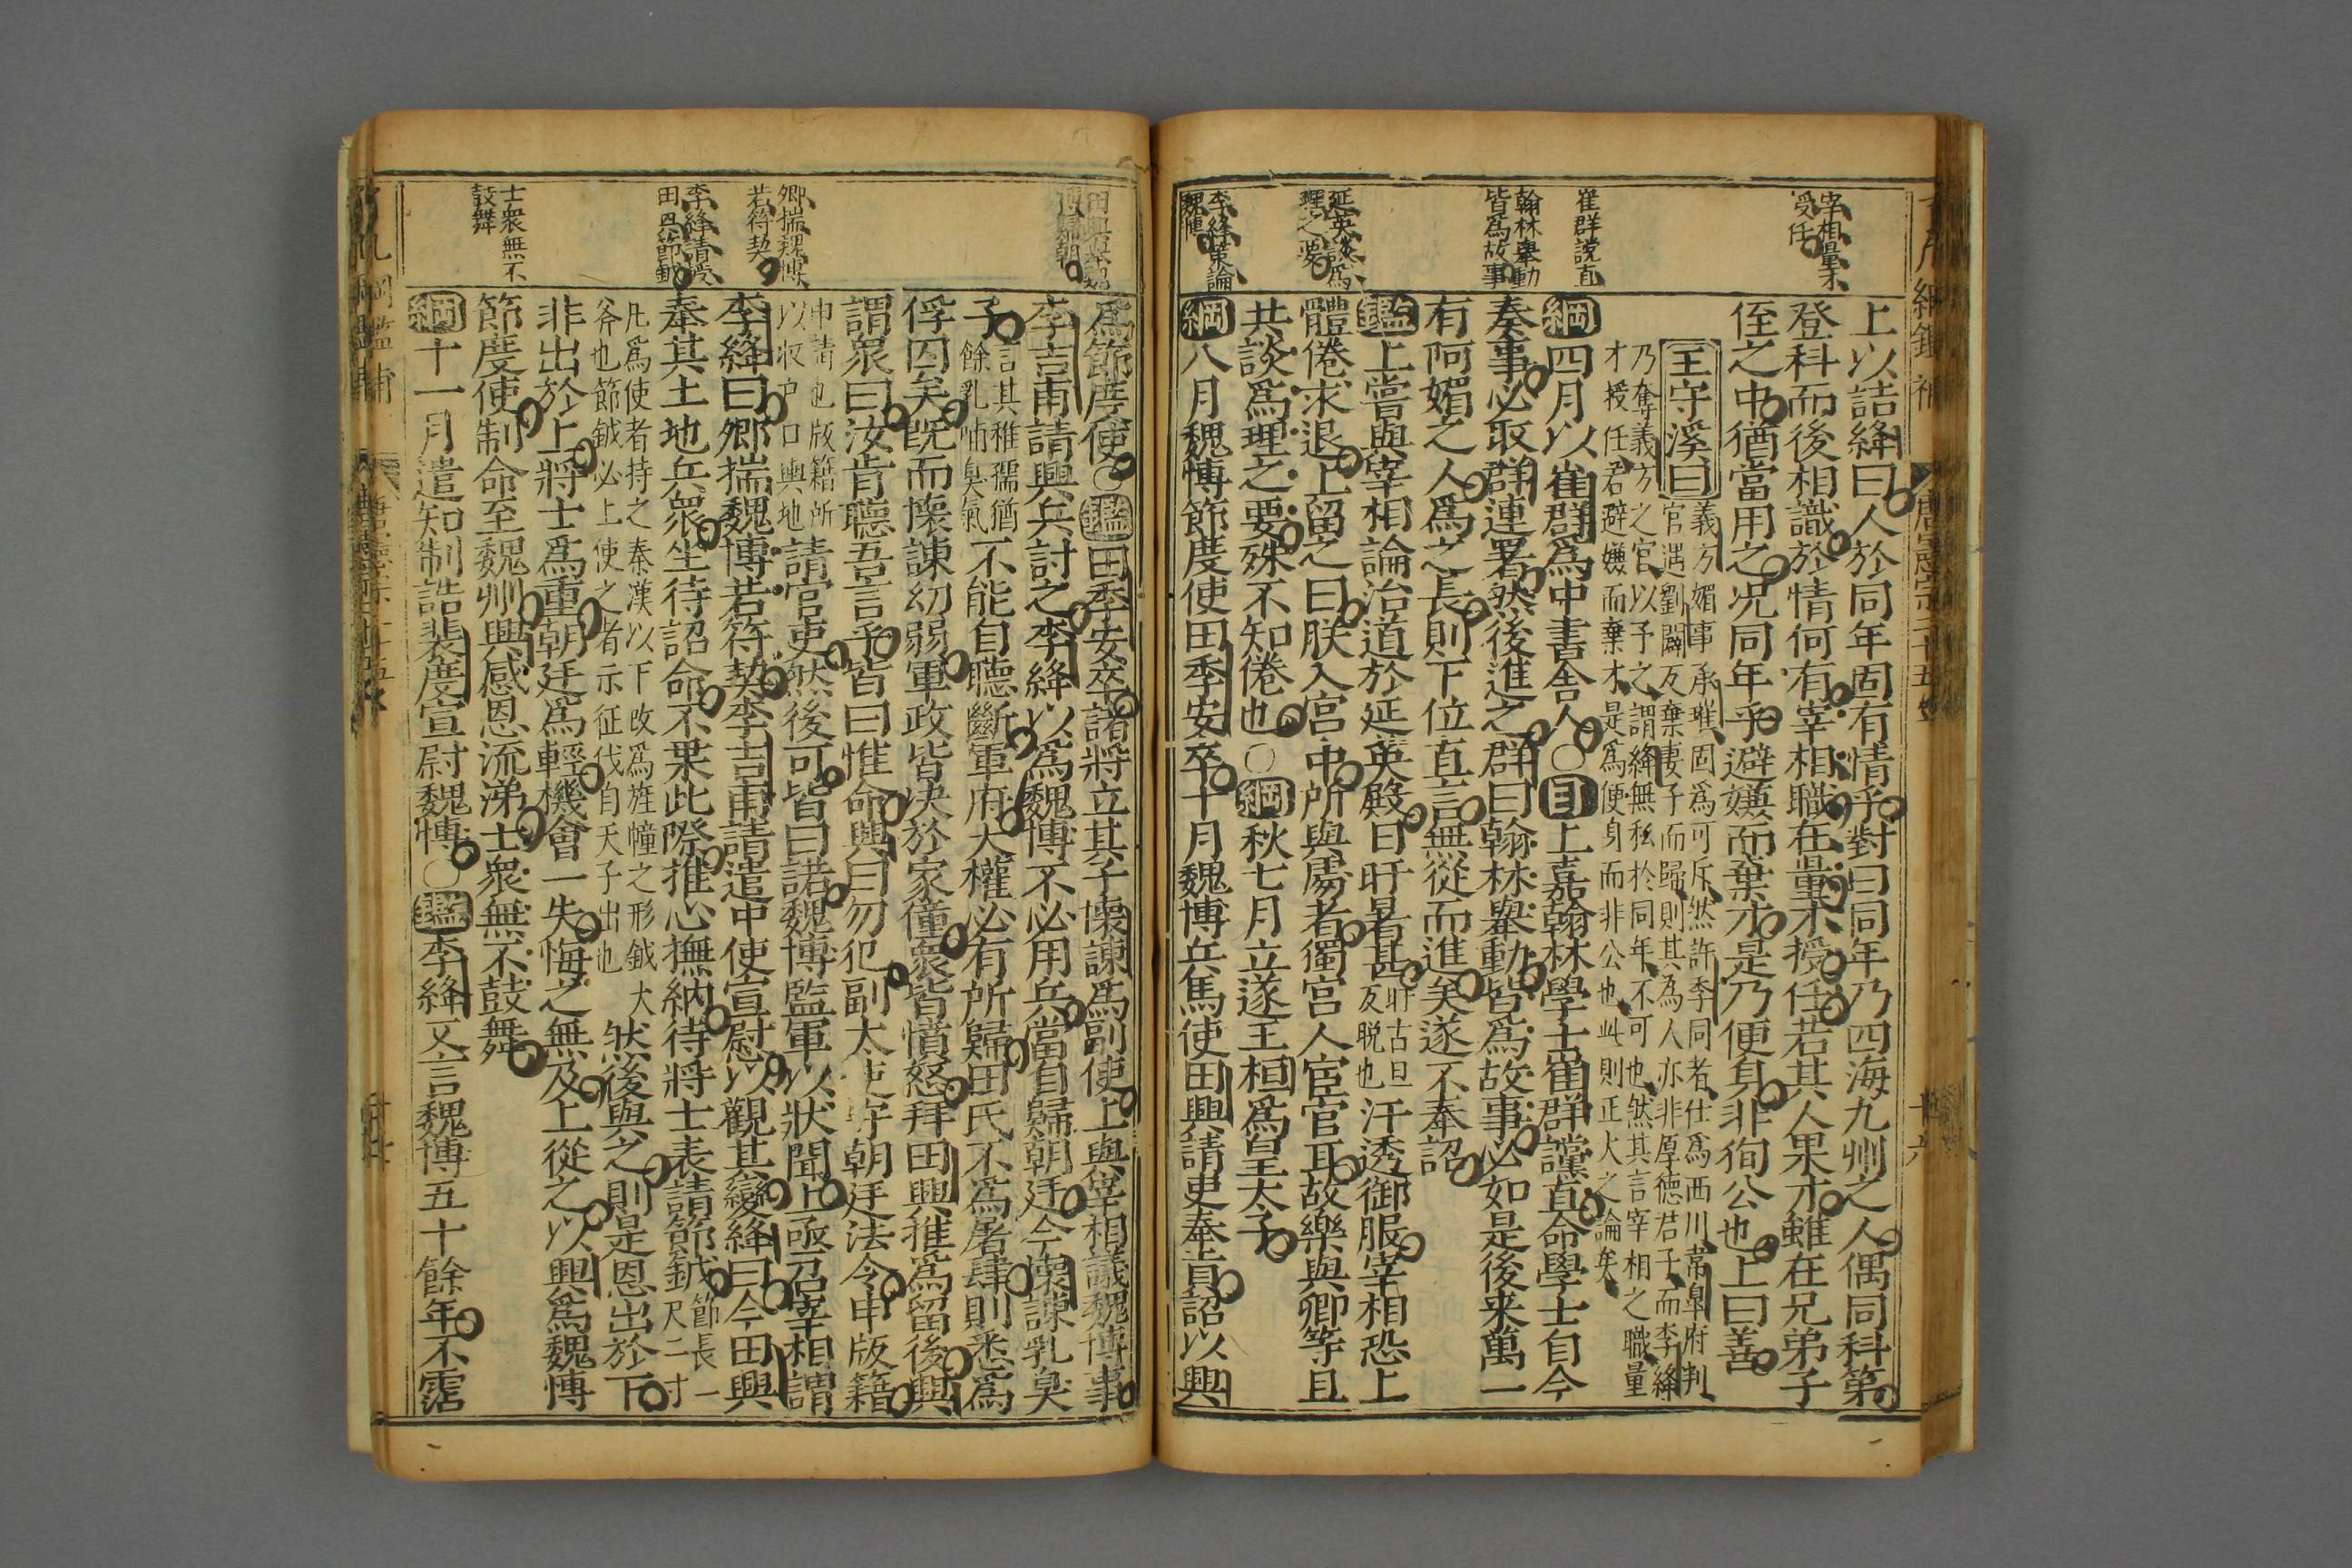 宰相量才
受任
崔群讜直
翰林舉動
皆爲故事
延英談爲
理之要
李絳策論
魏博
上以詰絳曰人於同年固有情乎對曰同年乃四海九州之人偶同科第
登科而後相識於情何有宰相職在量才授任若其人果才雖在兄弟子
侄之中猶當用之况同年乎避嫌而棄才是乃便身非徇公也上曰善
王守溪曰
義方媚事承璀固爲可斥然許季同者仕爲西川韋皐府判
官遇劉闢反棄妻子而歸則其為人亦非厚德君子而李絳
乃奪義方之官以予之謂絳無私於同年不可也然其言宰相之職量
才授任君避嫌而棄才是爲便身而非公也此則正大之論矣
綱四月以崔群爲中書舍人〇目上嘉翰林學士崔群讜直命學士自今
奏事必取群連署然後進之群曰翰林舉動皆爲故事必如是後来萬一
有阿媚之人爲之長則下位直言無從而進矣遂不奉詔
鑑上嘗與宰相論治道於延英殿日旰暑甚旰古旦反脱也汗透御服宰相恐上
體倦求退上留之曰朕入宮中所與處者獨宮人宦官耳故樂與卿等且
共談爲理之要殊不知倦也〇綱秋七月立遂王桓爲皇太子
綱八月魏博節度使田季安卒十月魏博兵馬使田興請吏奉貢詔以興
田興與魏
博歸朝
卿揣魏博
若符契
李絳請授
田興節鉞
士衆無不
鼓舞
爲節度使〇鑑田季安卒諸將立其子懷諫為副使上與宰相議魏博事
李吉甫請興兵討之李絳以爲魏博不必用兵當自歸朝廷今懷諫乳臭
子言其稚孺猶餘乳哺臭氣不能自聽斷軍府大權必有所歸田氏不爲屠肆則悉為
俘囚矣既而懷諫幼弱軍政皆决於家僮衆皆憤怒拜田興推爲留後興
謂衆曰汝肯聽吾言乎皆曰惟命興曰勿犯副大使守朝廷法令申版籍
申請也版籍所以収户口輿地請官吏然後可皆曰諾魏博監軍以狀聞上亟召宰相謂
李絳曰卿揣魏博若符契李吉甫請遣中使宣慰以觀其變絳曰今田興
奉其土地兵衆坐待詔命不乗此際推心撫納待將士表請節鉞節長一尺二寸
凡爲使者持之秦漢以下改爲旌幢之形鉞大斧也節鉞必上使之者示征伐自天子出也然後與之則是恩出於下
非出於上將士爲重朝廷爲輕機會一失悔之無及上從之以興爲魏博
節度使制命至魏州興感恩流涕士衆無不鼓舞
綱十一月遣知制誥裴度宣尉魏博〇鑑李絳又言魏博五十餘年不霑